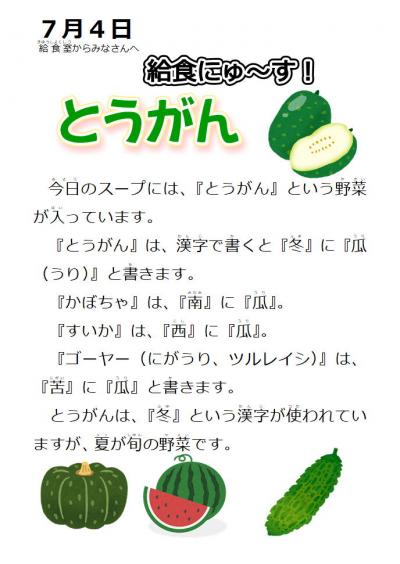 ７月４日
給食室からみなさんへ
給食にゅ～す！
とうがん
今日のスープには、『とうがん』という野菜
が入っています。
『とうがん』は、漢字で書くと『冬』に『瓜
（うり）』と書きます。
『かぼちゃ』は、『南』に『瓜』。
『すいか』は、『西』に『瓜』。
『ゴーヤー（にがうり、ツルレイシ）』は、
『苦』に『瓜』と書きます。
とうがんは、『冬』という漢字が使われてい
ますが、夏が旬の野菜です。